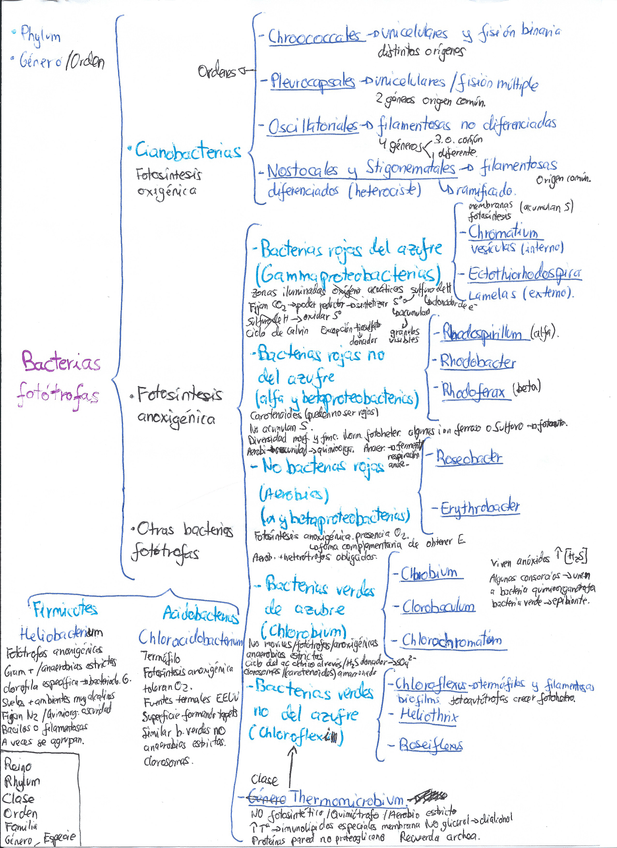 • Phylum
• Género/Orden
Bacterias
fotótrofas
• Cianobacterias
Fotosíntesis
oxigénica
Ordenes
- Chroococcales → unicelulares y fisión binaria
distintos orígenes
- Pleurocapsales → unicelulares/fisión múltiple
2 géneros origen común.
- Oscillatoriales → filamentosas no diferenciadas
4 géneros 3 o. común
1 diferente.
- Nostocales y Stigonematales → filamentosas
Origen común.
diferenciados (heterociste) ramificado.
• Fotosíntesis
anoxigénica
- Bacterias rojas del azufre
(Gammaproteobacterias)
zonas iluminadas oxígeno acuáticas sulfuro de H
Fijan CO2 → poder reductor → sintetizar S° donador de e-
Sulfuro de H → oxidar S° acumulado
Ciclo de Calvin Excepción tiosulfato gránulos
donador visibles
membranas (acumulan S)
fotosíntesis
- Chromatium
vesículas (interno)
- Ectothiorhodospira
Lamelas (externo).
- Bacterias rojas no
del azufre
(alfa y betaproteobacterias)
Carotenoides (pueden no ser rojas)
No acumulan S.
Diversidad morf. y func. Norm. fotoheter. algunas ion ferroso o sulfuro → fotoauto.
Aerobi → oscuridad → quimioorga. Anaer. → ferment.
respiración
anae.
- Rhodospirillum (alfa).
- Rhodobacter
- Rhodoferax (beta)
- No bacterias rojas
(Aerobias)
(α y betaproteobacterias)
Fotosíntesis anoxigénica presencia O2.
forma complementaria de obtener E
Aerob. → heterótrofos obligados.
- Roseobacter
- Erythrobacter
- Bacterias verdes
de azufre
(Chlorobium)
No móviles/fotótrofos/anoxigénicas
anaerobias estrictas
Ciclo del ac cítrico al revés/H2S donador → SO4 2-
clorosomas (carotenoides)
- Chlorobium
- Clorobaculum
- Chlorochromatium
Viven anóxidos ↑[H2S]
Algunos consorcios → viven
a bacteria quimioorganotrofa
bacteria verde → epibionte.
- Bacterias verdes
no del azufre
(Chloroflexi)
- Chloroflexus → termófilos y filamentosas
biofilms. fotoautótrofas crecer fotohetero.
- Heliothrix
- Roseiflexus
Clase
- Género Thermomicrobium
No fotosintético/Quimiótrofo/Aerobio estricto
↑Tª → lípidos especiales membrana No glicerol → dialcohol
Proteínas pared no proteoglicano Recuerda archea.
• Otras bacterias
fotótrofas
Firmicutes
Heliobacterium
Fotótrofos anoxigénicos
Gram + /anaerobios estrictos
clorofila específica → bacteriocl. G.
Suelos + ambientes muy alcalinos
Fijan N2 /Quimiorg. oscuridad
Bacilos o filamentosas
A veces se agrupan.
Acidobacterias
Chloracidobacterium
Termófilo
Fotosíntesis anoxigénica
toleran O2.
Fuentes termales EEUU
Superficie formando tapetes
Similar b. verdes no
anaerobias estrictos.
clorosomas.
Reino
Phylum
Clase
Orden
Familia
Género, Especie